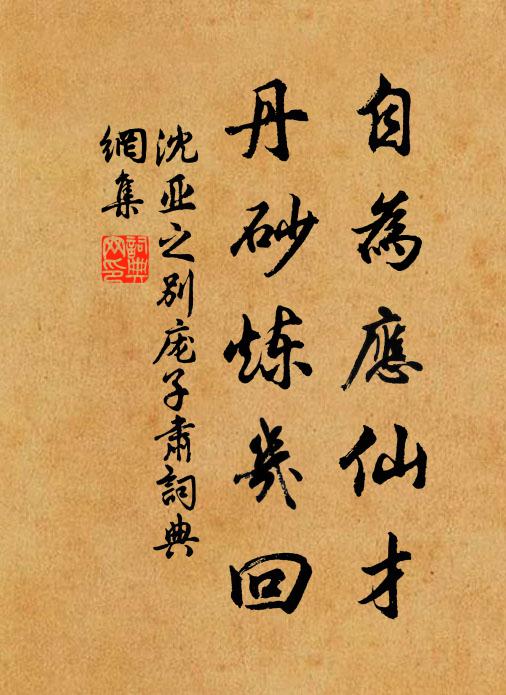 自為應仙才
丹砂炼幾回
沈亚之别庞子肃詞典
網集
詞典
网印